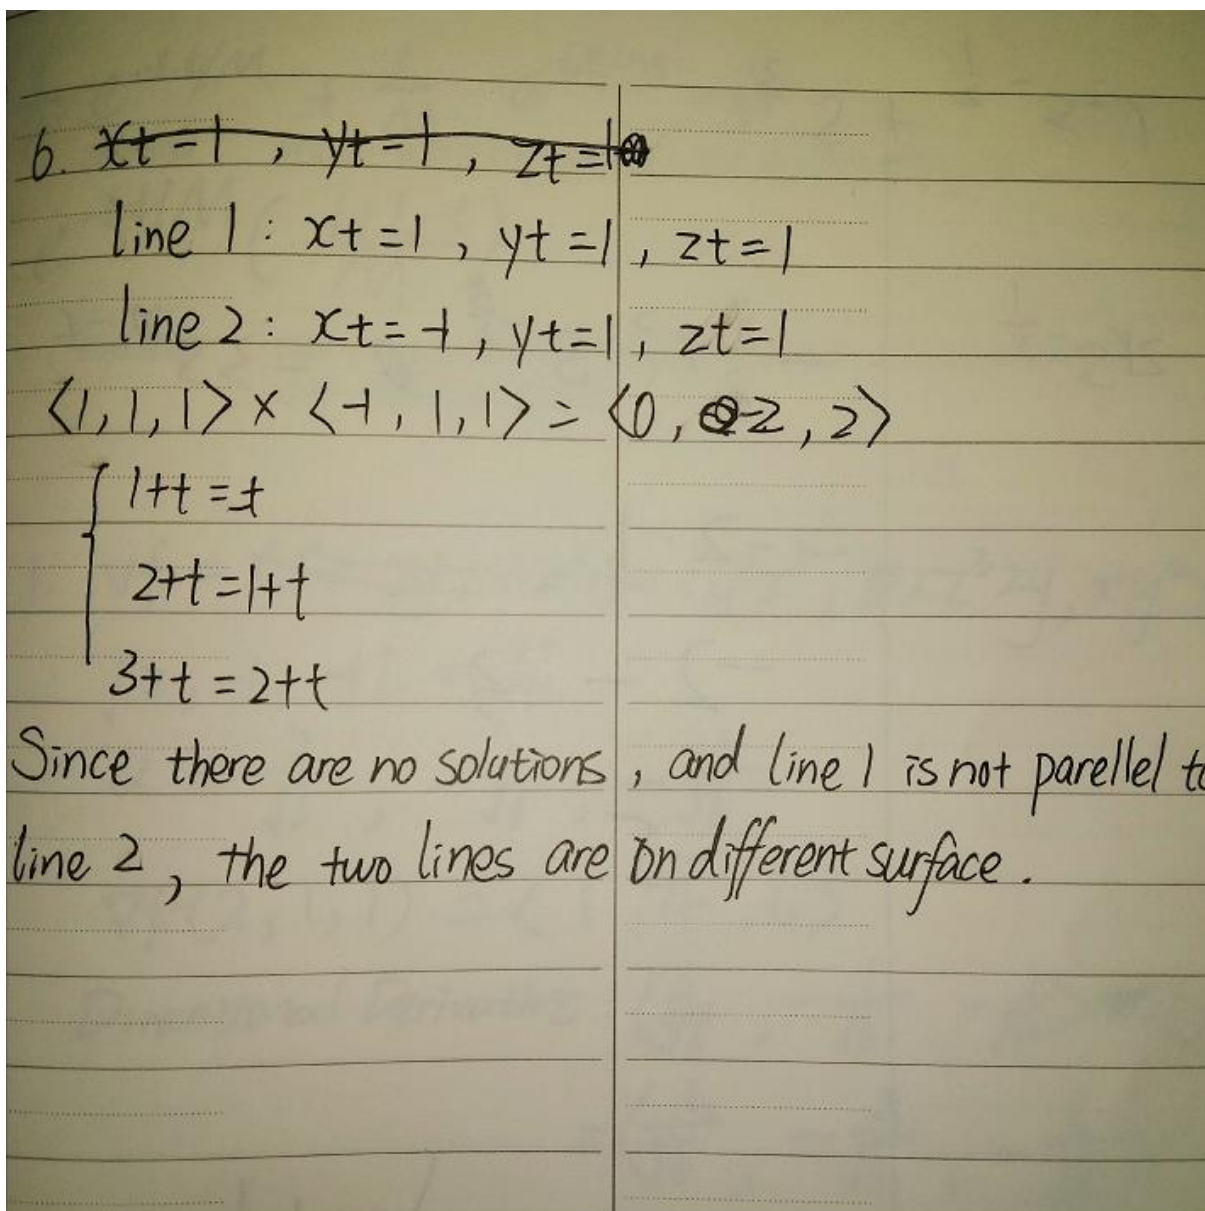 6. xt=1, yt=1, zt=1
line 1: xt=1, yt=1, zt=1
line 2: xt=-1, yt=1, zt=1
<1,1,1> × <-1,1,1> = <0,-2,2>
1+t=-t
2+t=1+t
3+t=2+t
Since there are no solutions, and line 1 is not parellel to
line 2, the two lines are on different surface.